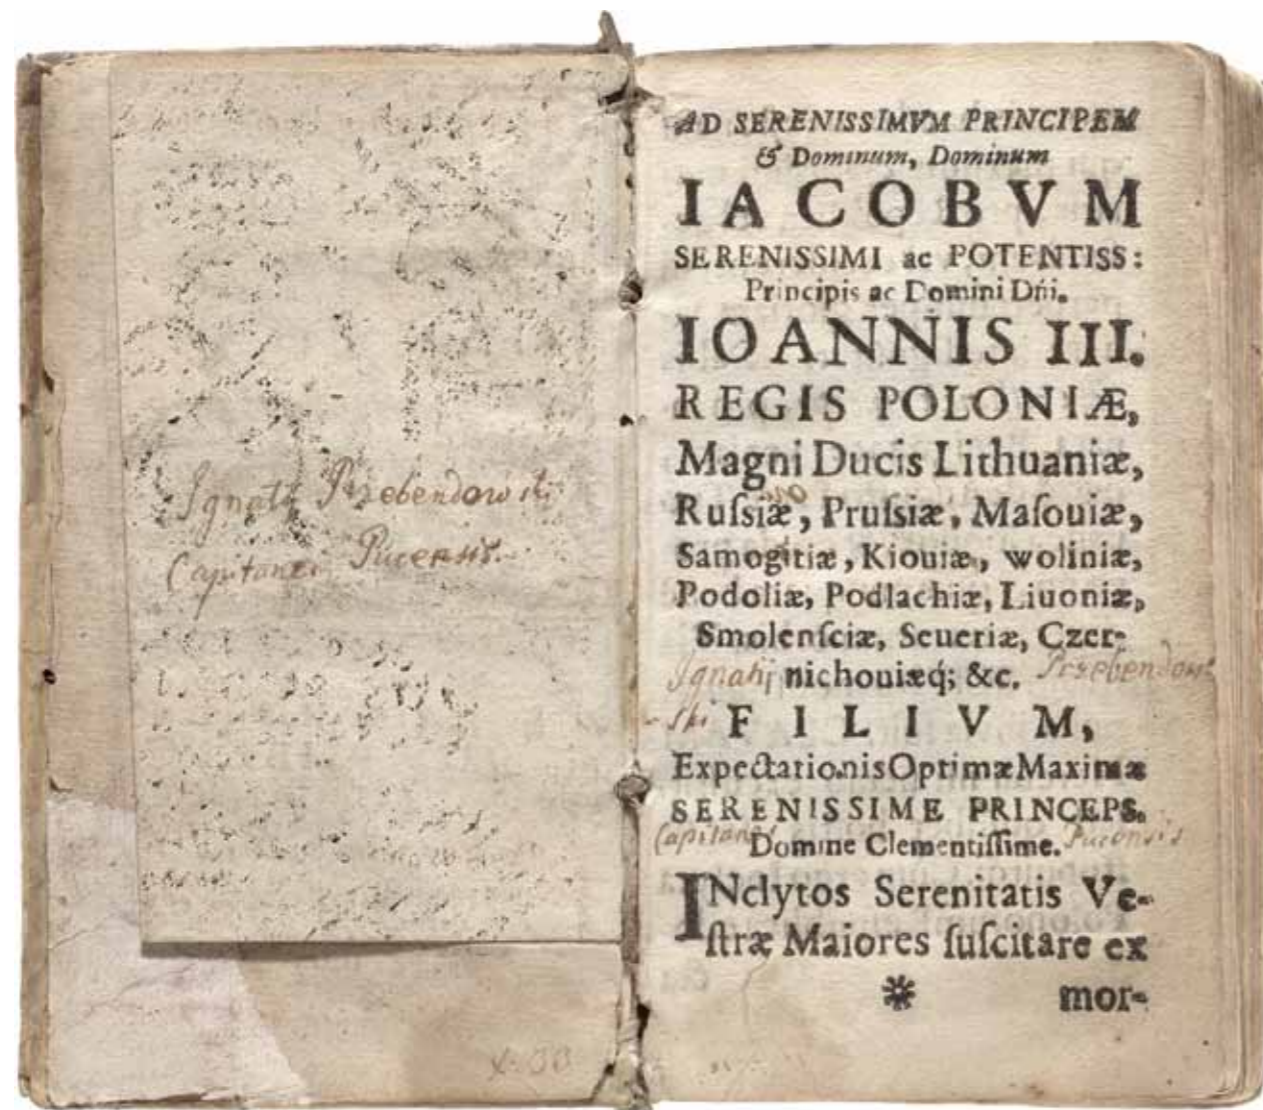 Ignatii Przebendowski
Capitanei Pucensis.
AD SERENISSIMVM PRINCIPEM
& Dominum, Dominum
IACOBVM
SERENISSIMI ac POTENTISS:
Principis ac Domini Dńi.
IOANNIS III.
REGIS POLONIÆ,
Magni Ducis Lithuaniæ,
Ruſsiæ, Pruſsiæ, Maſouiæ,
Samogitiæ, Kiouiæ, woliniæ,
Podoliæ, Podlachiæ, Liuoniæ,
Smolenſciæ, Seueriæ, Czer-
Ignatii nichouiæq́; &c. Przebendow-
-ski FILIVM,
Expectationis Optimæ Maximæ
SERENISSIME PRINCEPS.
Capitanei Domine Clementiſſime. Pucensis
INclytos Serenitatis Ve-
ſtræ Maiores ſuſcitare ex
*
mor-